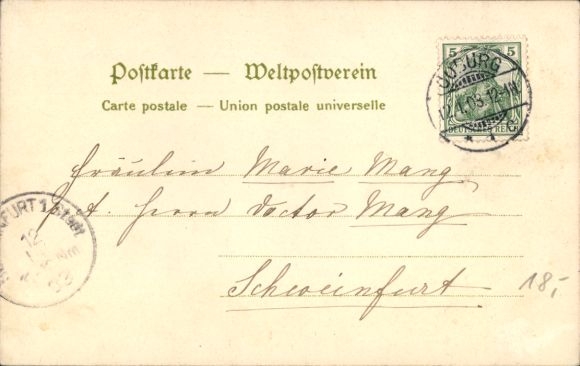 Postkarte — Weltpostverein
Carte postale — Union postale universelle
5 5
DEUTSCHES REICH
COBURG
Fräulein Marie Mang
Herrn Doctor Mang
Schweinfurt
18,-
FURT 1 Stadt
12